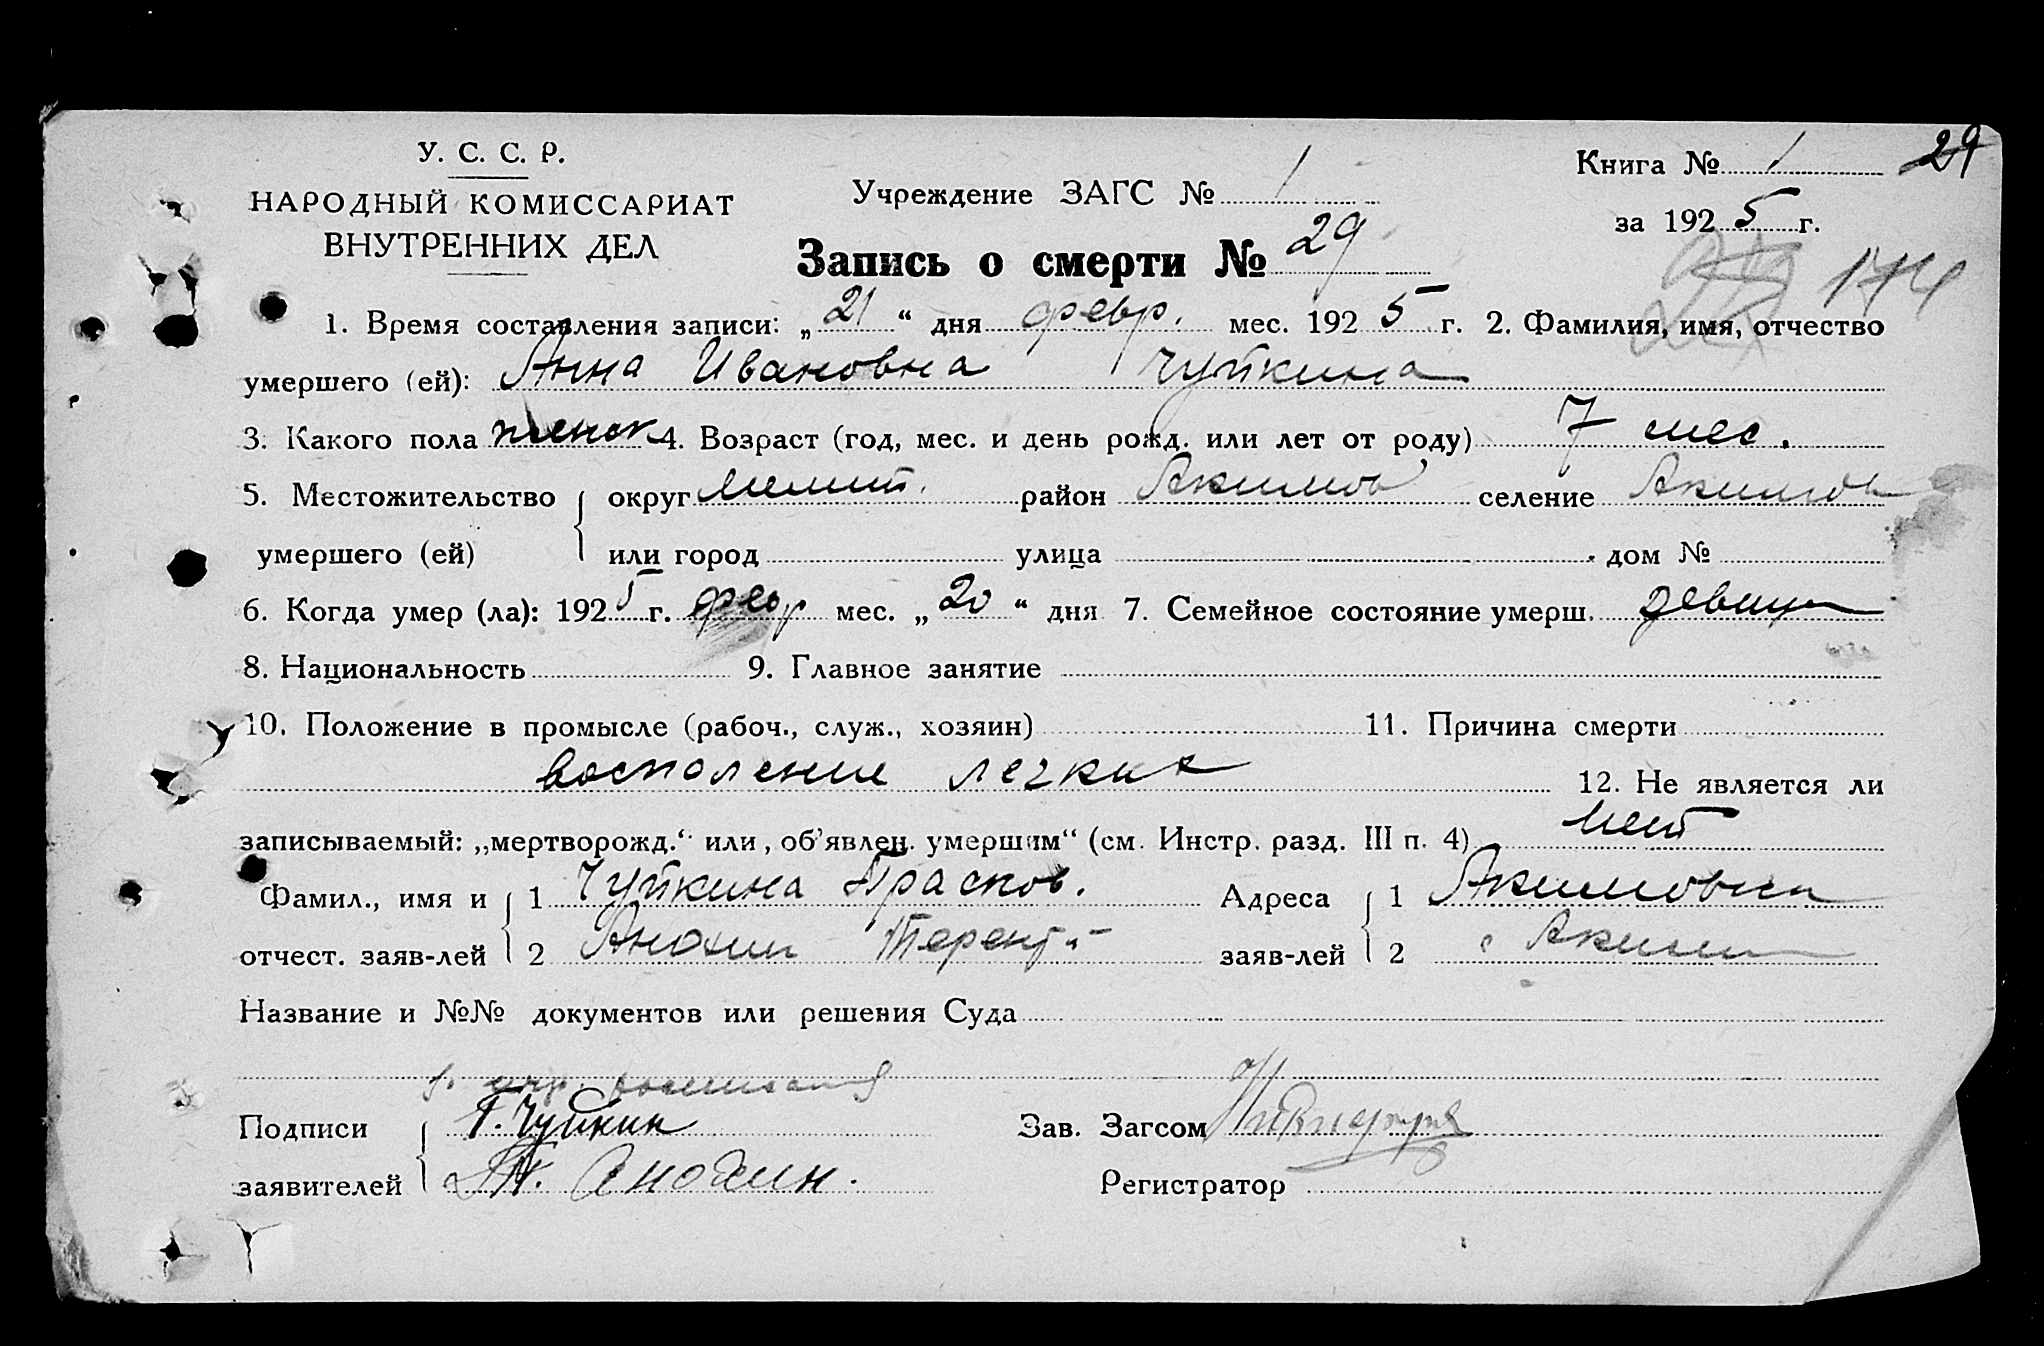 У. С. С. Р.
НАРОДНЫЙ КОМИССАРИАТ
ВНУТРЕННИХ ДЕЛ
Учреждение ЗАГС № 1
Книга № 1 29
за 1925 г.
Запись о смерти № 29
174
1. Время составления записи: „21“ дня февр. мес. 1925 г. 2. Фамилия, имя, отчество
умершего (ей): Анна Ивановна Чуйкина
3. Какого пола женск 4. Возраст (год, мес. и день рожд. или лет от роду) 7 мес.
5. Местожительство округ Мелит. район Акимов селение Акимов
умершего (ей) или город улица дом №
6. Когда умер (ла): 1925 г. февр мес. „20“ дня 7. Семейное состояние умерш. девица
8. Национальность 9. Главное занятие
10. Положение в промысле (рабоч., служ., хозяин) 11. Причина смерти
воспаление легких 12. Не является ли
записываемый: „мертворожд.“ или „об’явлен. умершим“ (см. Инстр. разд. III п. 4) нет
Фамил., имя и 1 Чуйкина Прасков. Адреса 1 Акимовка
отчест. заяв-лей 2 Анохин Терент заяв-лей 2 Аким
Название и №№ документов или решения Суда
Подписи Г. Чуйкин Зав. Загсом
заявителей Анохин. Регистратор